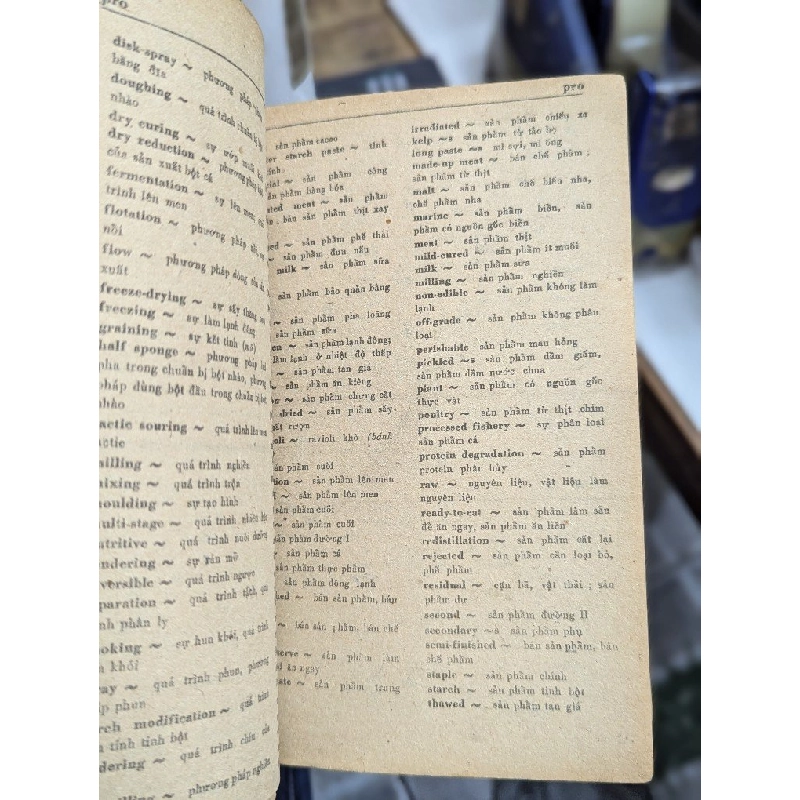 pro
disk-spray ~ phương pháp
bằng đĩa
doughing ~ quá trình chuẩn bị bột
nhào
dry curing ~ sự ướp muối khô
dry reduction ~ phương pháp
của sản xuất bột cá
fermentation ~ sự lên men,
trình lên men
flotation ~ phương pháp
nồi
flow ~ phương pháp dòng
xuất
freeze-drying ~ sự sấy thăng
freezing ~ sự làm lạnh đông
graining ~ sự kết tinh
half sponge ~ phương pháp
pha trong chuẩn bị bột nhào, phương
pháp dùng bột đầu trong chuẩn bị
nhào
actic souring ~ quá trình
actic
illing ~ quá trình nghiền
ixing ~ quá trình trộn
oulding ~ sự tạo hình
ulti-stage ~ quá trình nhiều
utritive ~ quá trình nuôi dưỡng
ndering ~ sự rán mỡ
versible ~ quá trình ngược
paration ~ quá trình tách,
nh phân ly
oking ~ sự hun khói, quá trình
khói
ay ~ quá trình phun, phương
áp phun
rch modification ~ quá trình
n tính tinh bột
dering ~ quá trình
lling ~ phương pháp nghiền
pro
sản phẩm cacao
er starch paste ~ tinh
ial ~ sản phẩm công
ản phẩm hàng hóa
ted meat ~ sản phẩm
bán sản phẩm thịt xay
ed ~ sản phẩm phế thải
~ sản phẩm đun nấu
milk ~ sản phẩm sữa
sản phẩm bảo quản bằng
~ sản phẩm pha loãng
sản phẩm sữa
en ~ sản phẩm lạnh đông;
làm lạnh ở nhiệt độ thấp
~ sản phẩm tan giá
~ sản phẩm ăn kiêng
~ sản phẩm chưng cất
dried ~ sản phẩm sấy
ất rượu
oli ~ ravioli khô
ản phẩm cuối
tion ~ sản phẩm lên men
~ sản phẩm lên men
sản phẩm cuối;
~ sản phẩm cuối
sản phẩm đường I
~ sản phẩm cá
~ sản phẩm thực phẩm
~ sản phẩm đông lạnh
hed ~ bán sản phẩm, bán
~ bán sản phẩm, bán chế
serve ~ sản phẩm
ăn ngay
aste ~ sản phẩm trung
irradiated ~ sản phẩm chiếu xạ
kelp ~s sản phẩm từ tảo bẹ
long paste ~ mì sợi, mì ống
made-up meat ~ bán chế phẩm;
sản phẩm từ thịt
malt ~ sản phẩm chế biến nha,
chế phẩm nha
marine ~ sản phẩm biển, sản
phẩm có nguồn gốc biển
meat ~ sản phẩm thịt
mild-cured ~ sản phẩm ít muối
milk ~ sản phẩm sữa
milling ~ sản phẩm nghiền
non-edible ~ sản phẩm không làm
lạnh
off-grade ~ sản phẩm không phân
loại
perishable sản phẩm mau hỏng
pickled ~s sản phẩm dầm giấm,
sản phẩm dầm nước chua
plant ~ sản phẩm có nguồn gốc
thực vật
poultry ~ sản phẩm từ thịt chim
processed fishery ~ sự phân loại
sản phẩm cá
protein degradation ~ sản phẩm
protein phân hủy
raw ~ nguyên liệu, vật liệu làm
nguyên liệu
ready-to-eat ~ sản phẩm làm sẵn
để ăn ngay, sản phẩm ăn liền
redistillation ~ sản phẩm cất lại
rejected ~ sản phẩm cần loại bỏ,
phế phẩm
residual ~ cặn bã, vật thải; sản
phẩm dư
second ~ sản phẩm đường II
secondary ~s sản phẩm phụ
semi-finished ~ bán sản phẩm, bán
chế phẩm
staple ~ sản phẩm chính
starch ~ sản phẩm tinh bột
thawed ~ sản phẩm tan giá